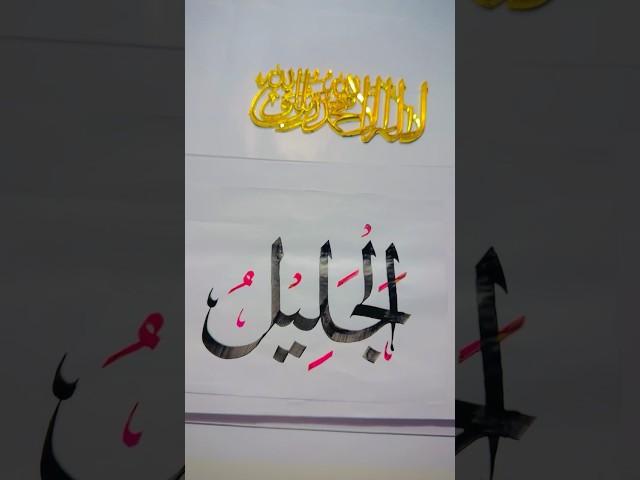 لا إله إلا الله محمد رسول الله
الْجَلِيلُ